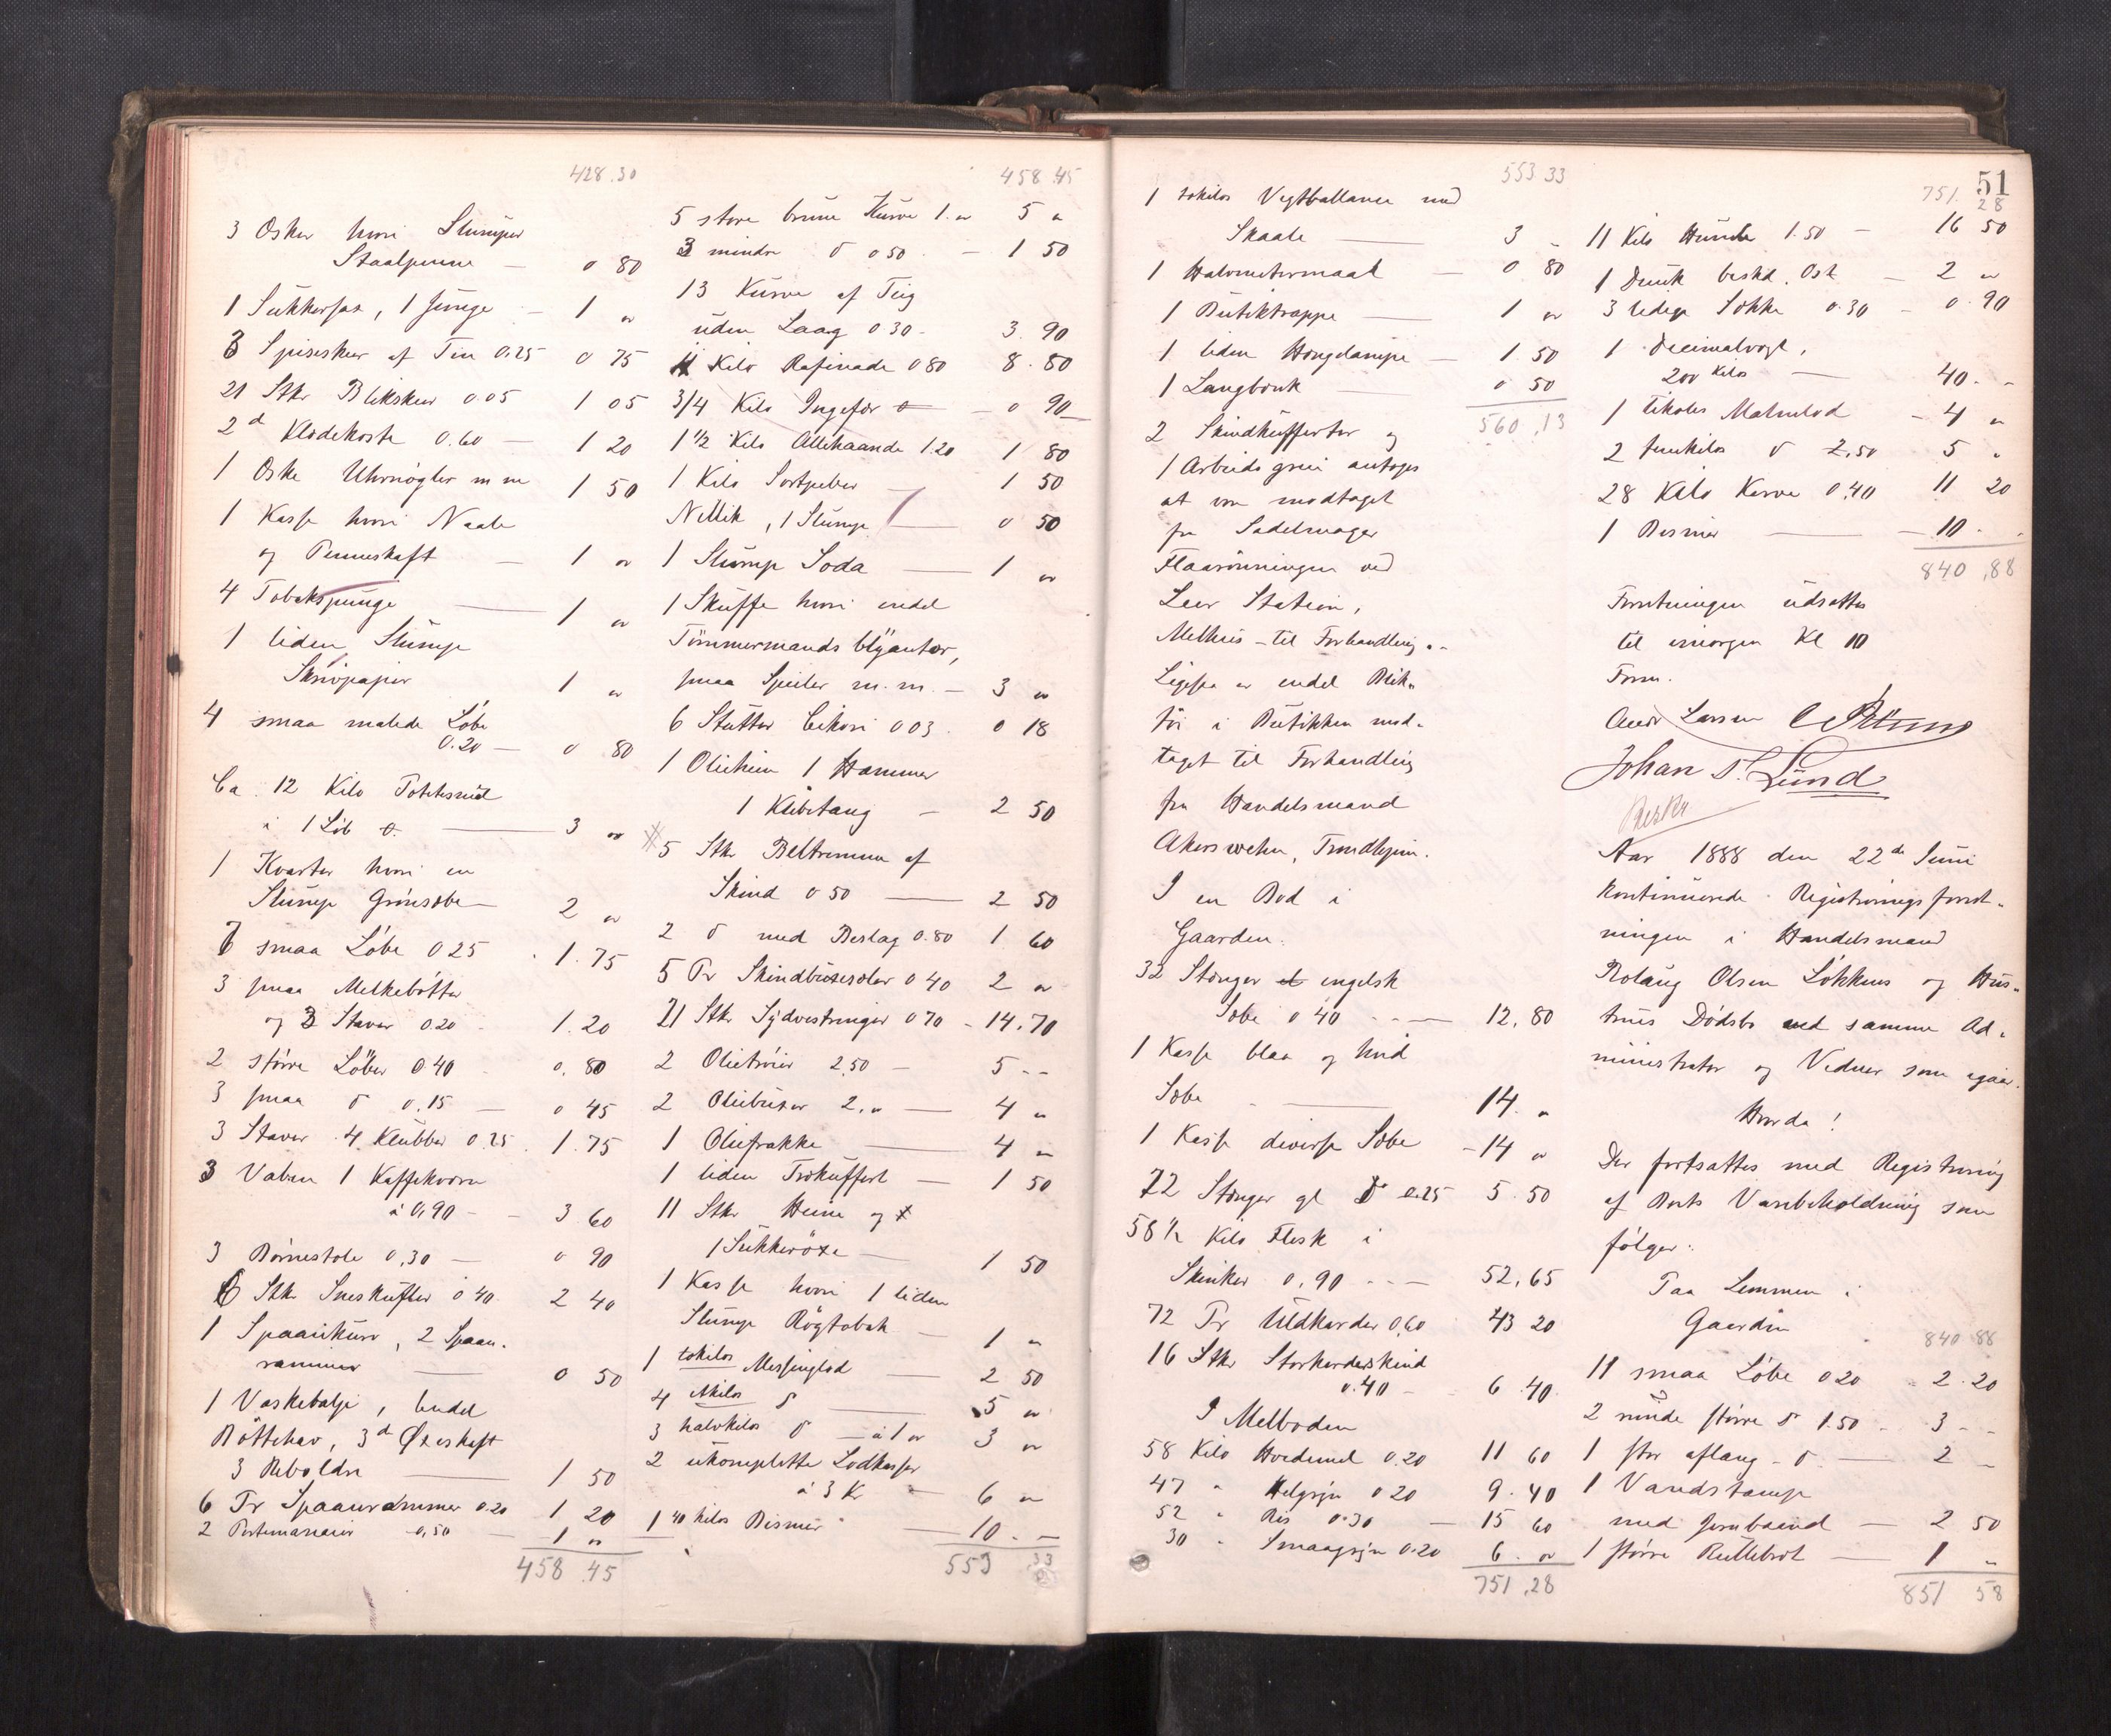 428.30
3 Æsker hvori Slumper
Staalpenne — 0 80
1 Sukkersax, 1 Junge — 1 "
3 Spiseskeer af Tin 0.25 0 75
21 Stkr Blikskeer 0.05 1 05
2 d Klædekoste 0.60 — 1 20
1 Æske Uhrnøgler m m 1 50
1 Kasse hvori Naale
og Penneskaft — 1 "
4 Tobakspunge — 1 "
1 liden Slump
Skrivpapir 1 "
4 smaa malede Løbe
0.20 — 0 80
Ca. 12 Kilo
i 1 Løb — 3 "
1 Kvarter hvori en
Slump Grønsæbe — 2 "
7 smaa Løbe 0 25 1.75
3 smaa Melkebøtter
og 3 Staver 0 20 1.20
2 større Løber 0 40 0.80
3 smaa d 0.15 — 0 45
3 Staver 4 Klubber 0.25 1.75
3 Vaben 1 Kaffekværn
à 0,90 — 3 60
3 Børnestole 0,30 — 0 90
6 Stkr Sneskufler 0 40 2 40
1 Spaankurv, 2 Spaan-
rammer — 0 50
1 Vaskebalje, endel
Bøttehav, 3 d Øxeskaft
3 — 1 50
6 Pr Spaanrammer 0.20 1 20
2 Portemonaier 0,50 — 1 "
458 45
458.45
5 store brune Kurve 1." 5 "
3 mindre d 0 50 — 1 50
13 Kurve af Teig
uden Laag 0 30 3.90
11 Kilo Rafinade 0 80 8.80
3/4 Kilo Ingefær — 0 90
1 1/2 Kilo Allehaande 1.20 1 80
1 Kilo Sortpeber — 1 50
Nellik, 1 Slump — 0 50
1 Slump Soda — 1 "
1 Skuffe hvori endel
Tømmermands blyanter,
smaa Speiler m.m. — 3 "
6 Støtter Cikori 0 03 0 18
1 1 Hammer
1 Knibetang — 2 50
5 Stkr Beltremme af
Skind 0 50 — 2 50
2 d med Beslag 0.80 1 60
5 Pr Skindbuxeseler 0 40 2 "
21 Stkr Sydvestringer 0 70 — 14.70
2 Olietrøier 2.50 — 5 --
2 Oliebuxer 2." — 4 "
1 Oliefrakke — 4 "
1 liden Trækuffert — 1 50
11 Stkr og
1 Sukkerøxe — 1 50
1 Kasse hvori 1 liden
Slump Røgtobak — 1 "
1 tokilos Messinglod — 2 50
4 d — 5 "
3 halvkilos d — à 1 " 3 "
2 ukomplette Lodkasser
à 3 Kr — 6 "
1 40 kilos Bismer 10. —
553 33
553 33
1 tokilos Vegtballance med
Skaale — 3 "
1 Halvmetermaal — 0 80
1 Butiktrappe — 1 "
1 liden Hængelampe — 1.50
1 Langbænk — 0 50
560.13
2 Skindkufferter og
1 Arbeids antages
at være modtaget
fra Sadelmager
Flaarønningen ved
Leer Station,
Melhus – til Forhandling.-
Ligesaa er endel Blik-
tøi i Butikken mod-
taget til Forhandling
fra Handelsmand
Trondhjem.
I en Bod i
Gaarden.
32 Stænger engelsk
Sæbe 0 40 — 12.80
1 Kasse blaa og hvid
Sæbe — 14. "
1 Kasse diverse Sæbe — 14 "
22 Stænger gl d 0.25 5.50
58 1/2 Kilo Flesk i
Skinker 0.90 — 52.65
72 Pr Uldkarder 0,60 43 20
16 Stkr Storkardeskind
0.40 — 6.40
I Melboden
58 Kilo Hvedemel 0.20 11 60
47 " Helgryn 0 20 9.40
52 " Ris 0.30 — 15 60
30 " Smaagryn 0.20 6. "
751.28
51
751.28
11 Kilo 1.50 — 16 50
1 Dunk beskd. Ost — 2 "
3 ledige Sække 0.30 — 0.90
1 Decimalvægt,
200 Kilos — 40. -
1 tikilos Malmlod — 4 "
2 femkilos d 2,50 5 "
28 Kilo 0,40 11 20
1 Bismer — 10 -
840,88
Forretningen udsattes
til imorgen Kl 10
Form.
Andr Larsen
Johan S. Lund
Aar 1888 den 22de Juni
kontinuerede Registreringsforret-
ningen i Handelsmand
Rolaug Olsen Løkkens og Hus-
trues Dødsbo ved samme Ad-
ministrator og Vidner som igaar.
Hvorda!
Der fortsattes med Registrering
af Boets Varebeholdning som
følger:
Paa Lemmen i
Gaarden
840 88
11 smaa Løbe 0 20 — 2.20
2 runde større d 1.50 — 3 - -
1 stor aflang d — 2 -
1 Vandstamp
med Jernbaand — 2 50
1 større — 1 "
851 58